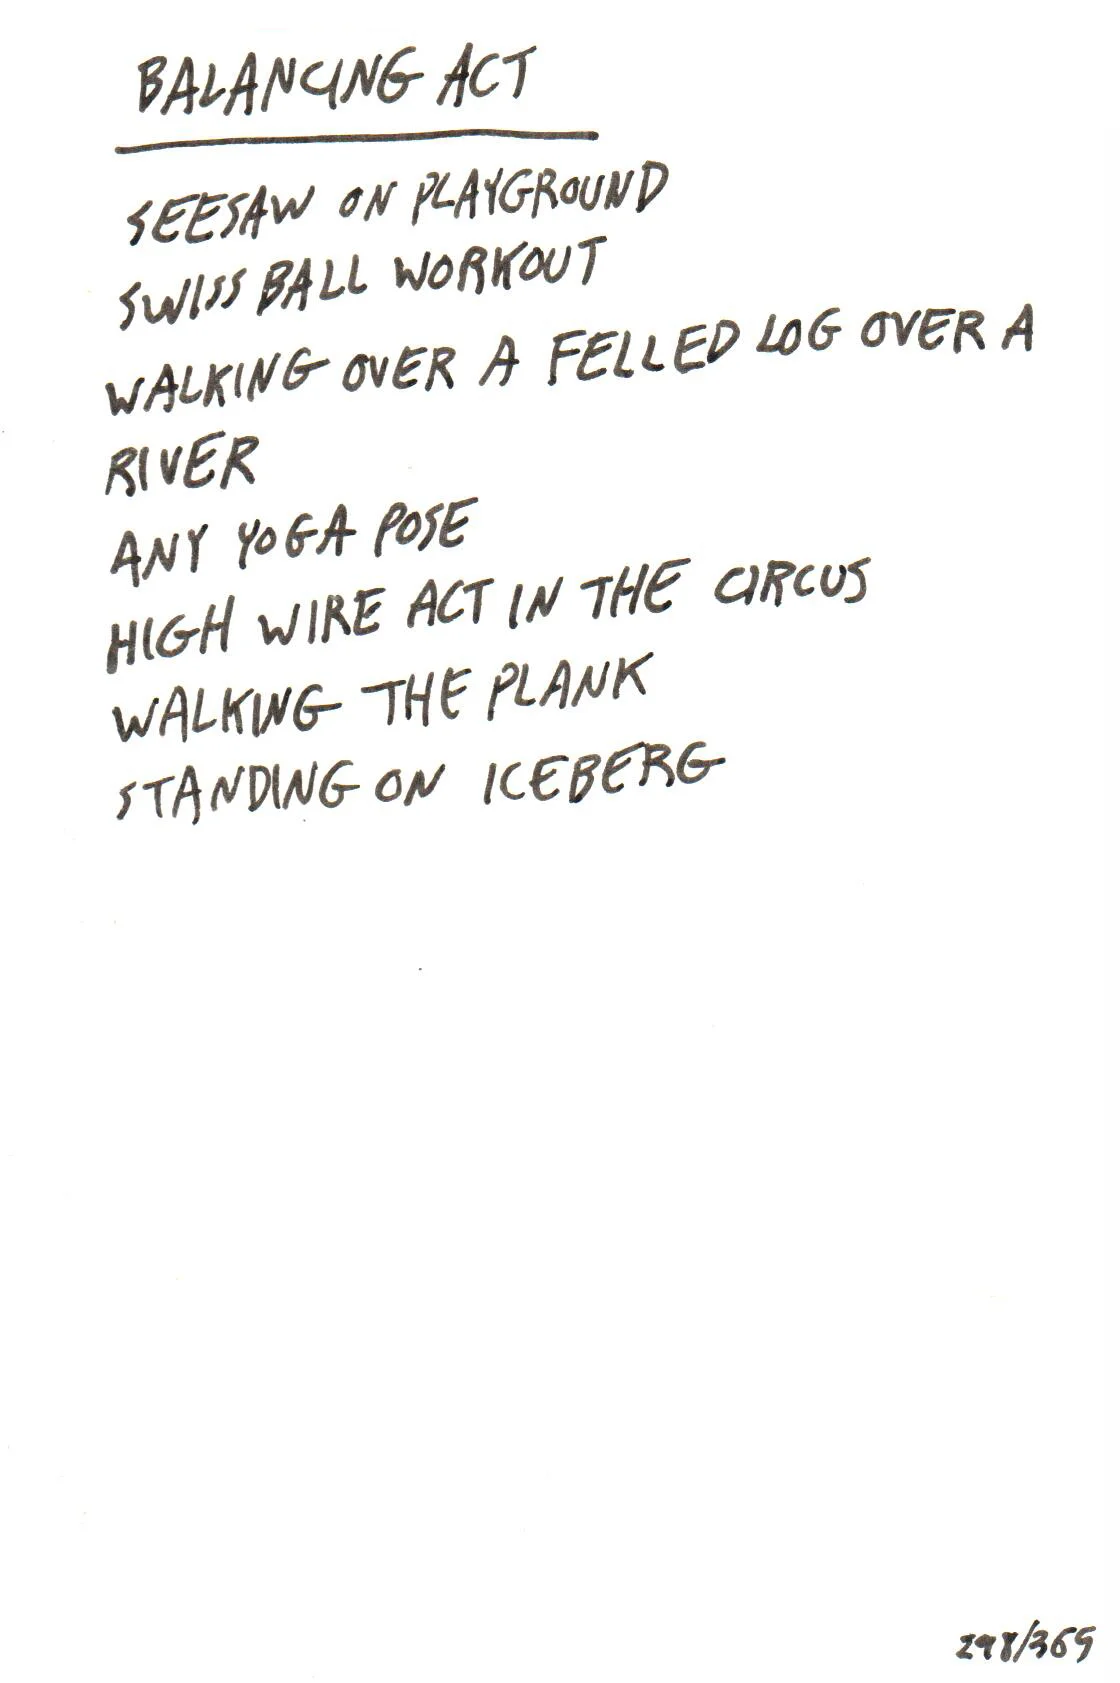 BALANCING ACT
SEESAW ON PLAYGROUND
SWISS BALL WORKOUT
WALKING OVER A FELLED LOG OVER A
RIVER
ANY YOGA POSE
HIGH WIRE ACT IN THE CIRCUS
WALKING THE PLANK
STANDING ON ICEBERG
298/365